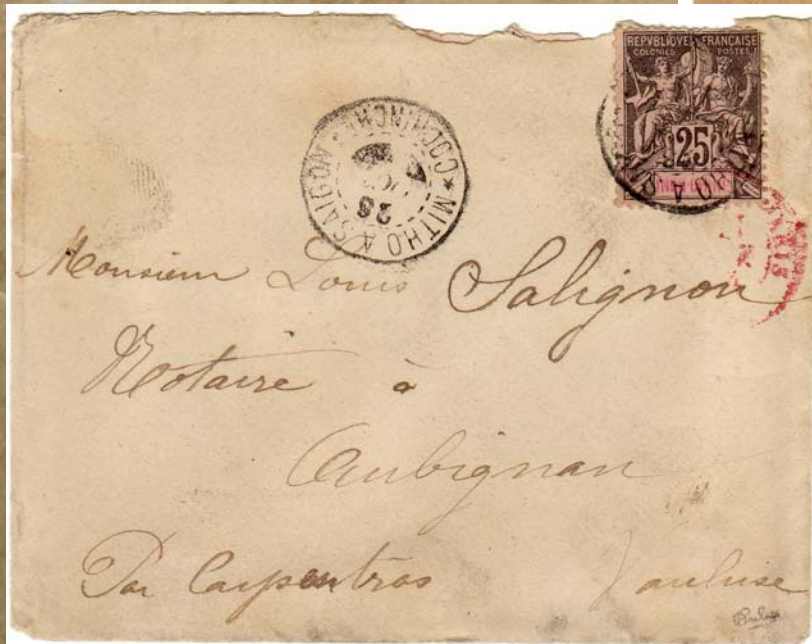 REPVBLIQVE FRANÇAISE
COLONIES POSTES
25
MITHO A SAIGON * COCHINCHINE *
26
PARIS
Monsieur Louis Salignon
Notaire à
Aubignan
Par Carpentras Vaucluse